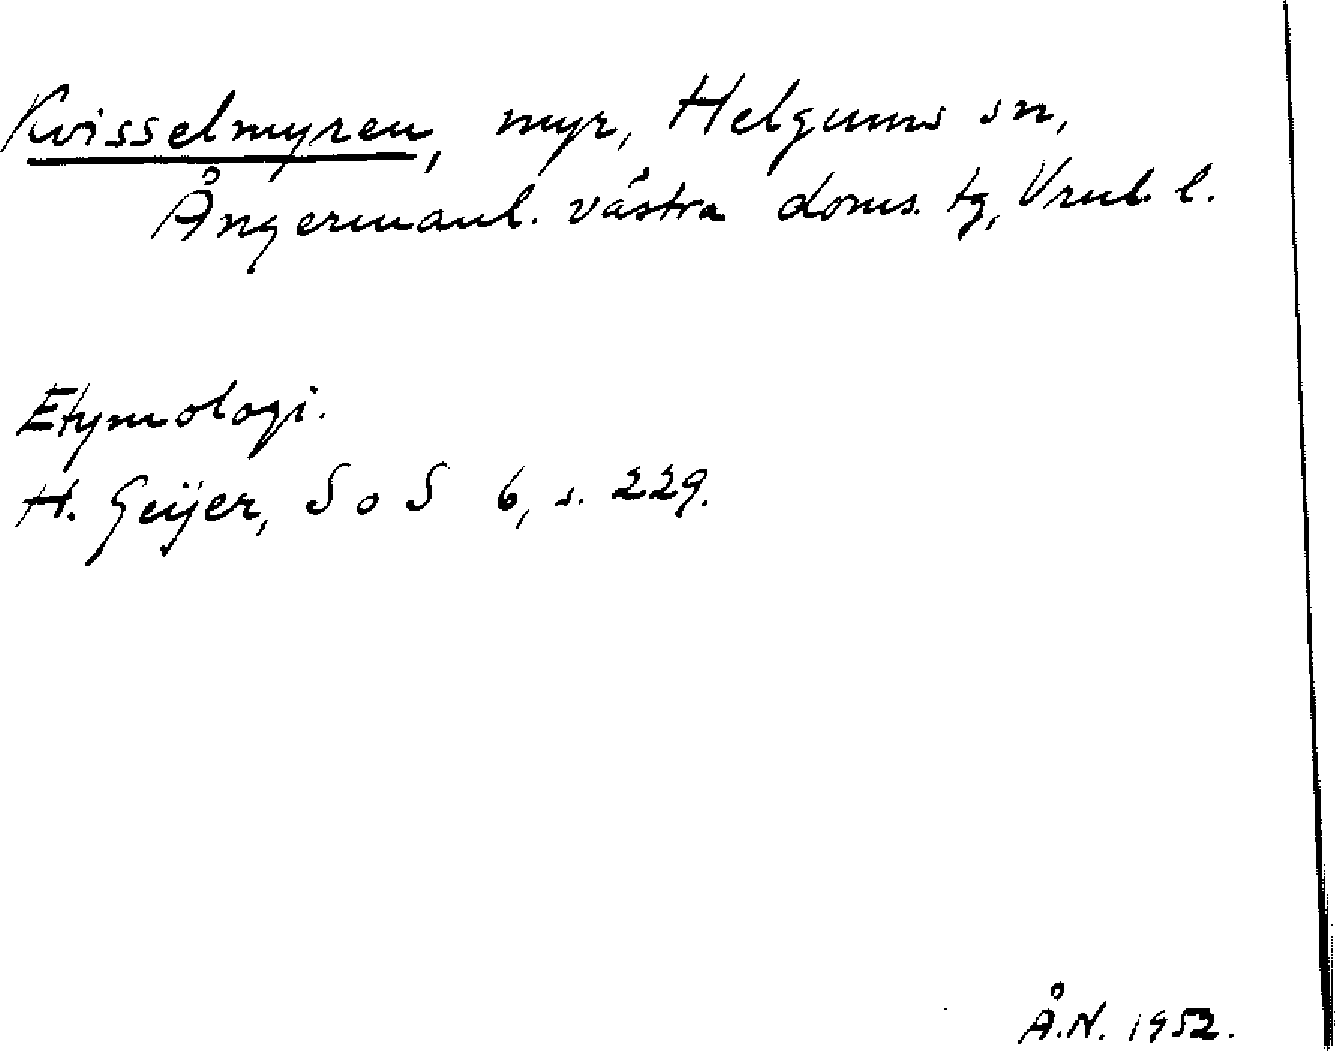 Kvisselmyren, myr, Helgums sn,
Ångermanl. västra doms. tg, Vrnl. l.
Etymologi.
H. Geijer, S o S 6, s. 229.
Å.N. 1952.